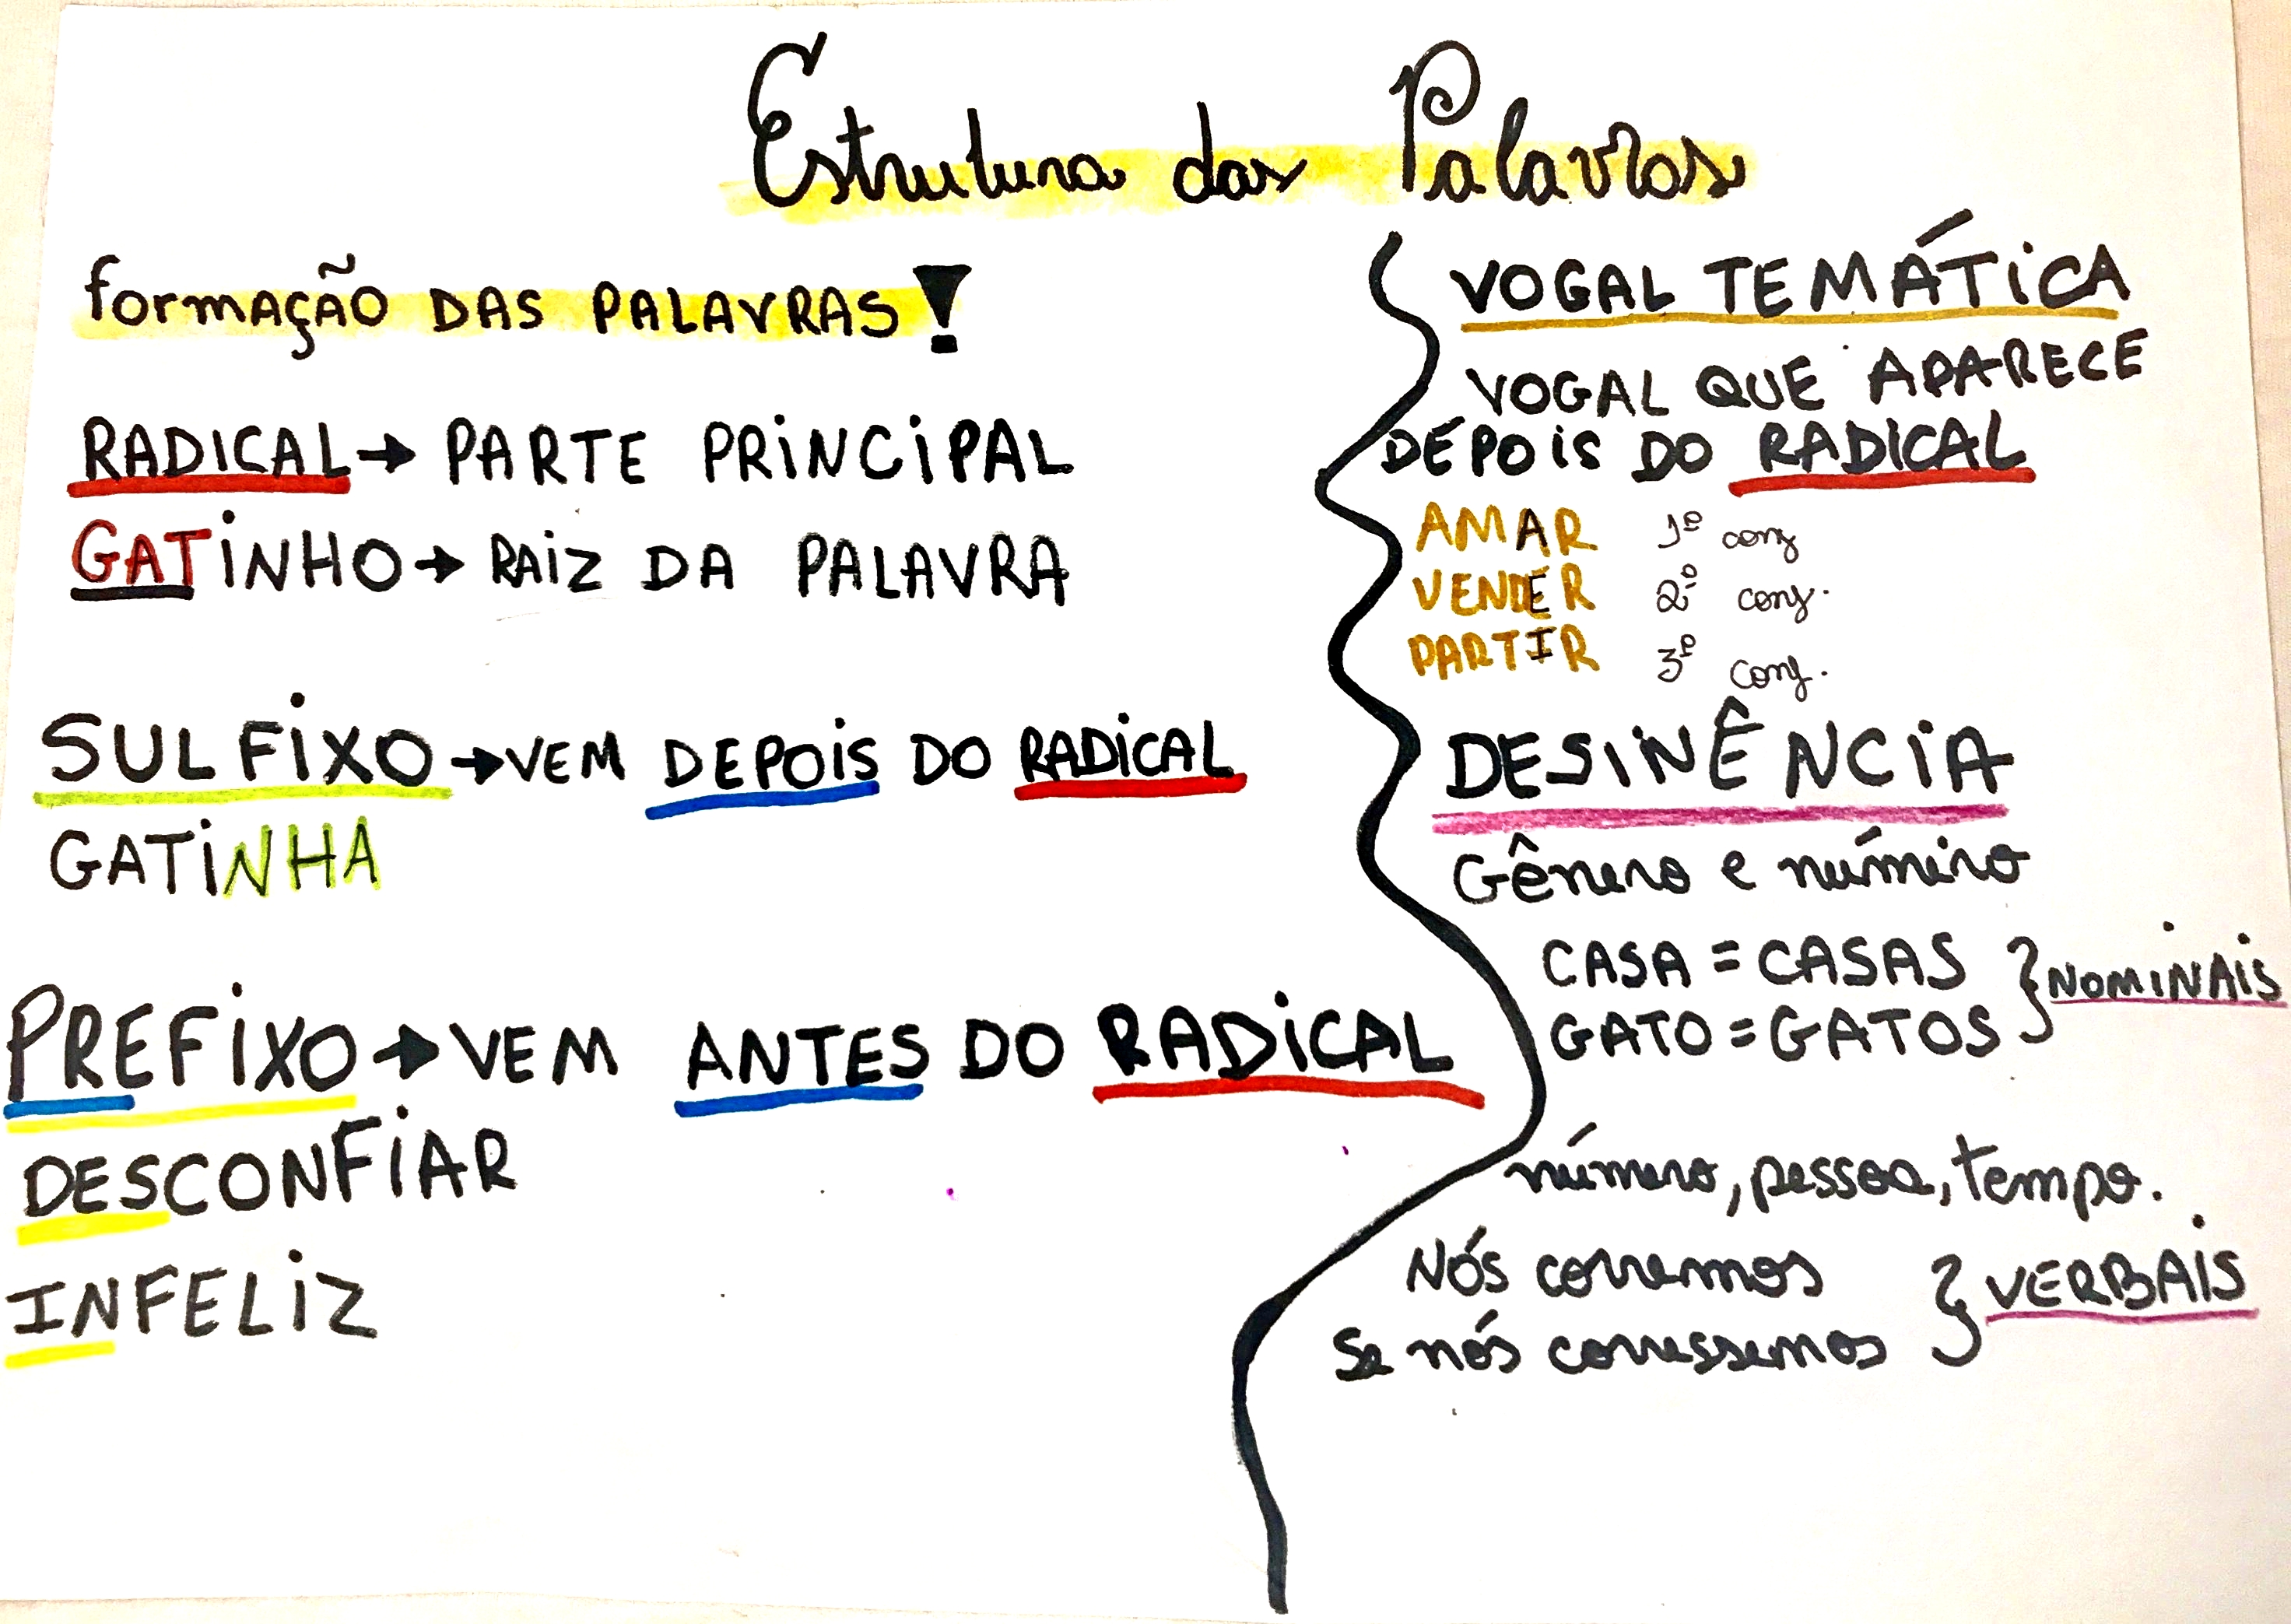 Estrutura das Palavras
formAÇÃO DAS PALAVRAS!
RADICAL → PARTE PRINCIPAL
GATINHO → RAIZ DA PALAVRA
SULFIXO → VEM DEPOIS DO RADICAL
GATINHA
PREFIXO → VEM ANTES DO RADICAL
DESCONFIAR
INFELIZ
VOGAL TEMÁTICA
VOGAL QUE APARECE
DEPOIS DO RADICAL
AMAR 1ª conj
VENDER 2ª conj.
PARTIR 3ª conj.
DESINÊNCIA
Gênero e número
CASA = CASAS } NOMINAIS
GATO = GATOS
número, pessoa, tempo.
Nós corremos } VERBAIS
Se nós corressemos